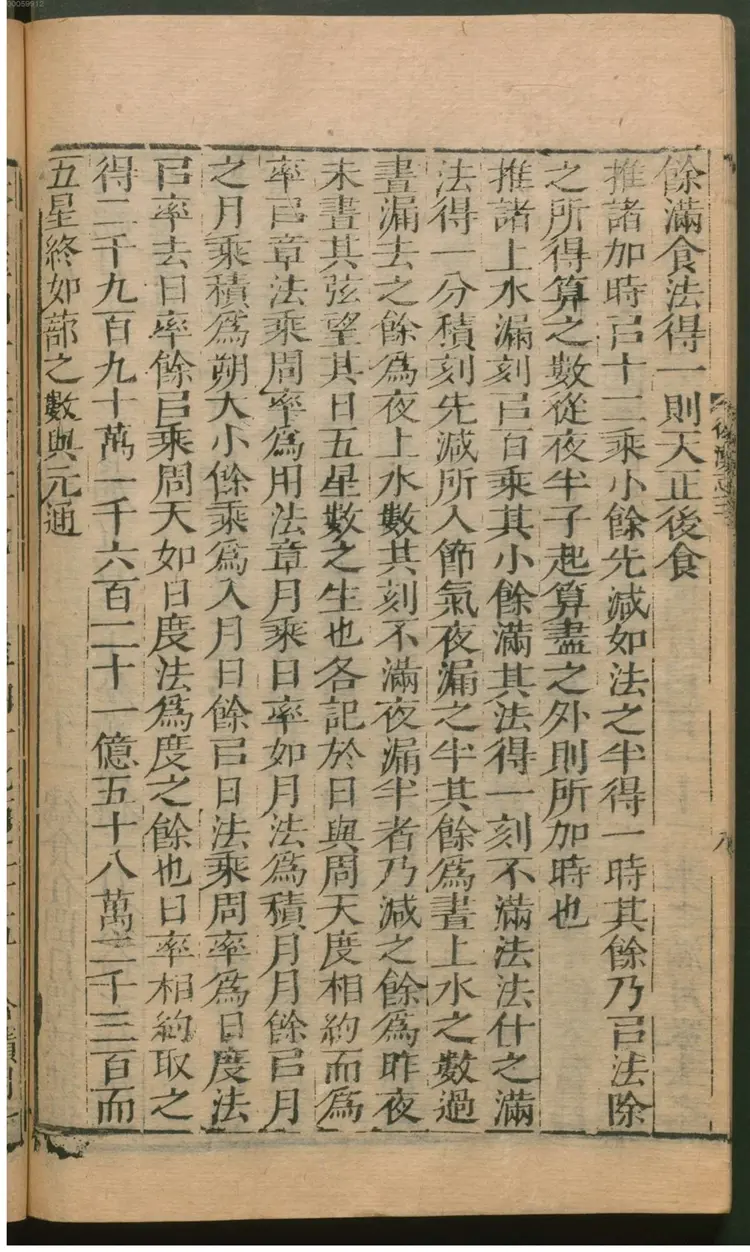 餘滿食法得一則天正後食
推諸加時㠯十二乘小餘先減如法之半得一時其餘乃㠯法除
之所得算之數從夜半子起算盡之外則所加時也
推諸上水漏刻㠯百乘其小餘滿其法得一刻不滿法法什之滿
法得一分積刻先減所入節氣夜漏之半其餘爲晝上水之數過
晝漏去之餘爲夜上水數其刻不滿夜漏半者乃減之餘爲昨夜
未晝其弦望其日五星數之生也各記於日與周天度相約而爲
率㠯章法乘周率爲用法章月乘日率如月法爲積月月餘㠯月
之月乘積爲朔大小餘乘爲入月日餘㠯日法乘周率爲日度法
㠯率去日率餘㠯乘周天如日度法爲度之餘也日率相約取之
得二千九百九十萬一千六百二十一億五十八萬二千三百而
五星終如蔀之數與元通
00059912